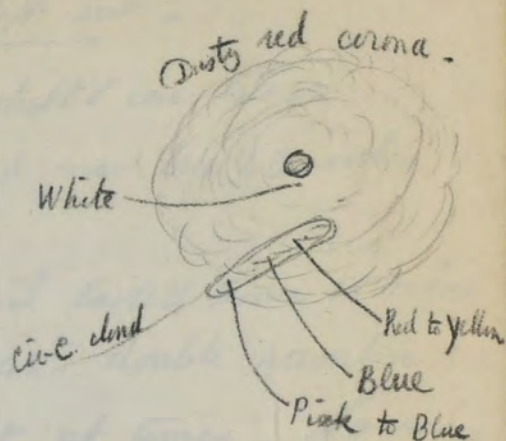 Dusty red corona.
White
Ci-C. cloud
Red to yellow
Blue
Pink to Blue